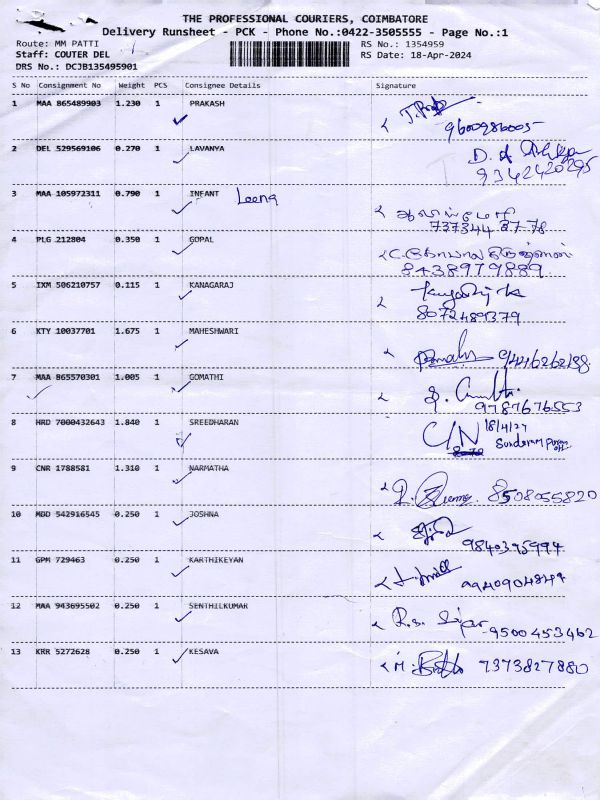 THE PROFESSIONAL COURIERS, COIMBATORE
Delivery Runsheet - PCK - Phone No.:0422-3505555 - Page No.:1
Route: MM PATTI RS No.: 1354959
Staff: COUTER DEL RS Date: 18-Apr-2024
DRS No.: DCJB135495901
S No Consignment No Weight PCS Consignee Details Signature
1 MAA 865489903 1.230 1 PRAKASH
9600986005
2 DEL 529569106 0.270 1 LAVANYA
9342420295
3 MAA 105972311 0.790 1 INFANT Leena
737344 87 78
4 PLG 212804 0.350 1 GOPAL
8438979889
5 IXM 506210757 0.115 1 KANAGARAJ
8072489379
6 KTY 10037701 1.675 1 MAHESHWARI
7 MAA 865570301 1.005 1 GOMATHI
9787676553
8 HRD 7000432643 1.840 1 SREEDHARAN C/N
9 CNR 1788581 1.310 1 NARMATHA
8508055820
10 MBD 542916545 0.250 1 JOSHNA
9840395994
11 GPM 729463 0.250 1 KARTHIKEYAN
9940904849
12 MAA 943695502 0.250 1 SENTHILKUMAR
9500453462
13 KRR 5272628 0.250 1 KESAVA 7373827880